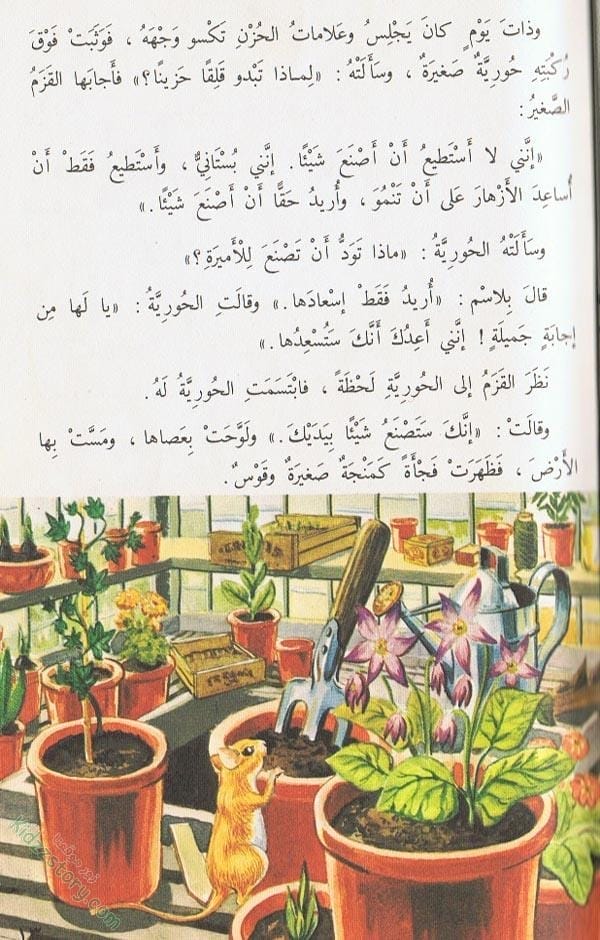 وذاتَ يَوْمٍ كانَ يَجْلِسُ وعَلاماتُ الحُزْنِ تَكْسو وَجْهَهُ ، فَوَثَبَتْ فَوْقَ
رُكْبَتِهِ حُوريَّةٌ صَغيرَةٌ ، وسَأَلَتْهُ : «لِمـاذا تَبْدو قَلِقًا حَزينًا؟» فَأجابَها القَزَمُ
الصَّغيرُ :
«إنَّني لا أَسْتَطيعُ أنْ أصْنَعَ شَيْئًا. إنَّني بُسْتانِيٌّ ، وأَسْتَطيعُ فَقَطْ أنْ
أُساعِدَ الأَزْهارَ عَلى أنْ تَنْمُوَ ، وأُريدُ حَقًّا أنْ أصْنَعَ شَيْئًا.»
وسَأَلَتْهُ الحُورِيَّةُ : «ماذا تَوَدُّ أنْ تَصْنَعَ لِلْأَميرَةِ؟»
قالَ بِلاسْم : «أُريدُ فَقَطْ إسْعادَها.» وقالَتِ الحُورِيَّةُ : «يا لَها مِن
إجابَةٍ جَميلَةٍ! إنَّني أَعِدُكَ أنَّكَ سَتُسْعِدُها.»
نَظَرَ القَزَمُ إلى الحُورِيَّةِ لَحْظَةً ، فابْتَسَمَتِ الحُورِيَّةُ لَهُ.
وقالَتْ : «إنَّكَ سَتَصْنَعُ شَيْئًا بِيَدَيْكَ.» ولَوَّحَتْ بِعَصاها ، ومَسَّتْ بِها
الأَرْضَ ، فَظَهَرَتْ فَجْأَةً كَمَنْجَةٌ صَغيرَةٌ وقَوْسٌ.
Kidzstory.com
١٣